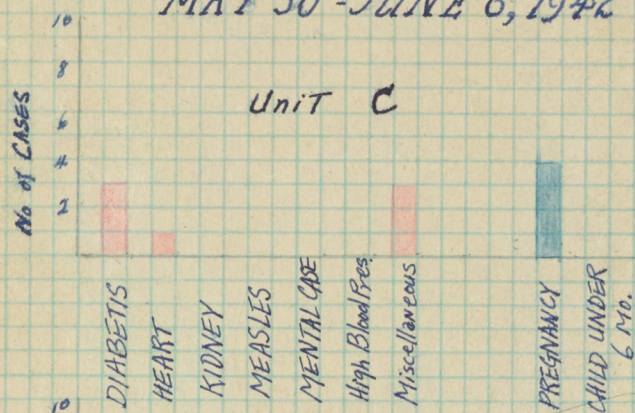 MAY 30 - JUNE 6, 1942
10
8
UniT C
6
4
2
No of CASES
DIABETIS
HEART
KIDNEY
MEASLES
MENTAL CASE
High Blood Pres.
Miscellaneous
PREGNANCY
CHILD UNDER
6 MO.
10